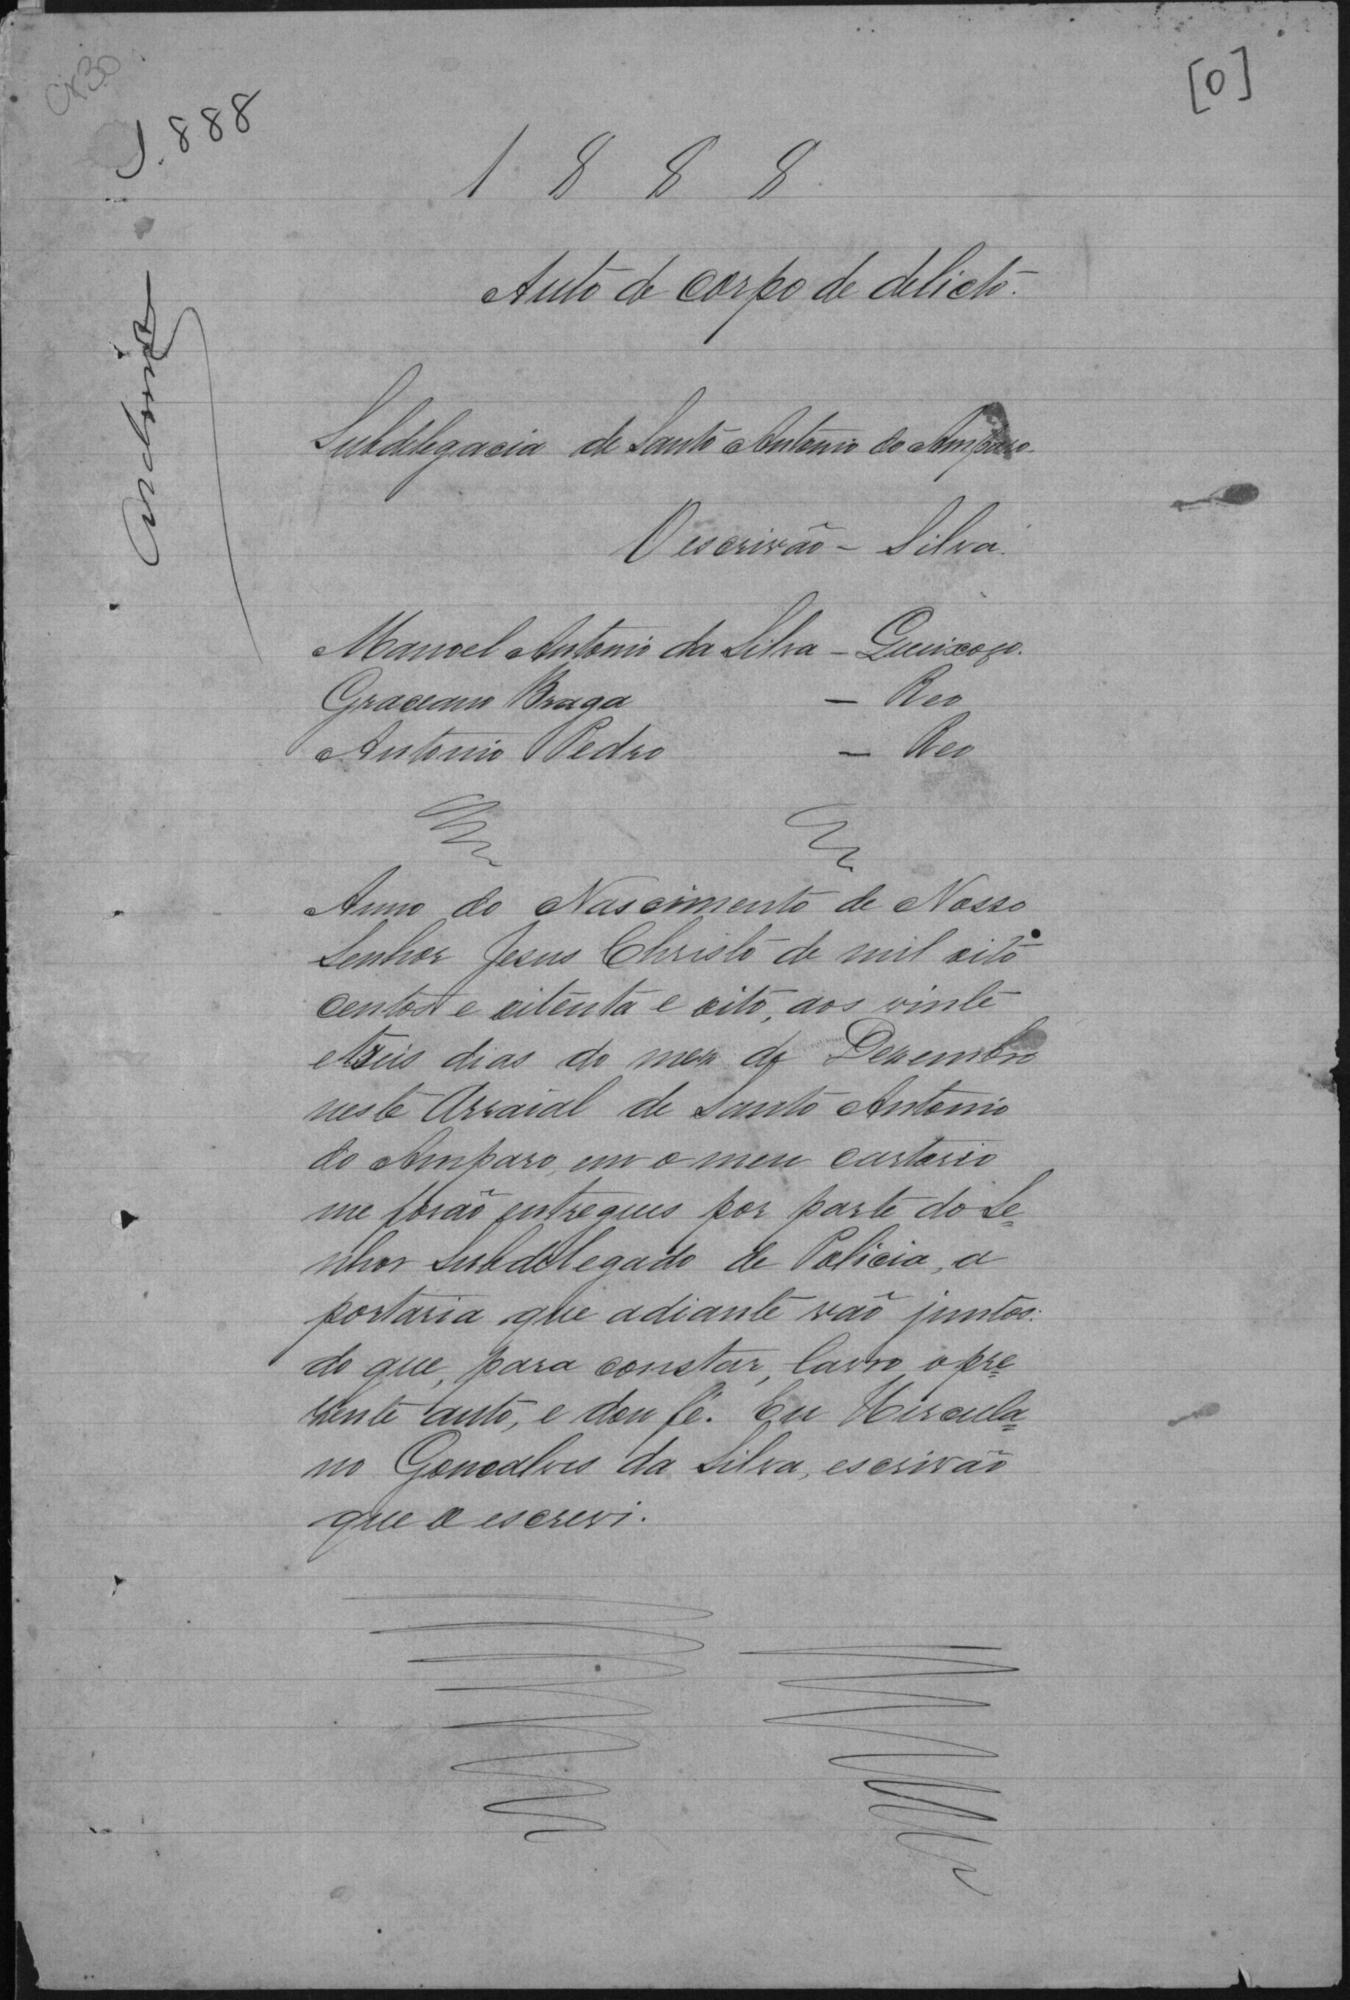 cx30
1.888
[0]
1888
Auto de corpo de delicto.
Subdelegacia de Santo Antonio do Amparo.
O escrivão – Silva.
Manoel Antonio da Silva – Queixoso.
Graceano Braga – Reo
Antonio Pedro – Reo
Anno do Nascimento de Nosso
Senhor Jesus Christo de mil oito
centos e oitenta e oito, aos vinte
e treis dias do mez de Dezembro
neste Arraial de Santo Antonio
do Amparo, em o meu cartorio
me forão entregues por parte do Se=
nhor Subdelegado de Policia, a
portaria que adiante vão juntos:
do que, para constar, lavro o pre=
zente auto, e dou fé. Eu Hercula=
no Goncalves da Silva, escrivão
que o escrevi.